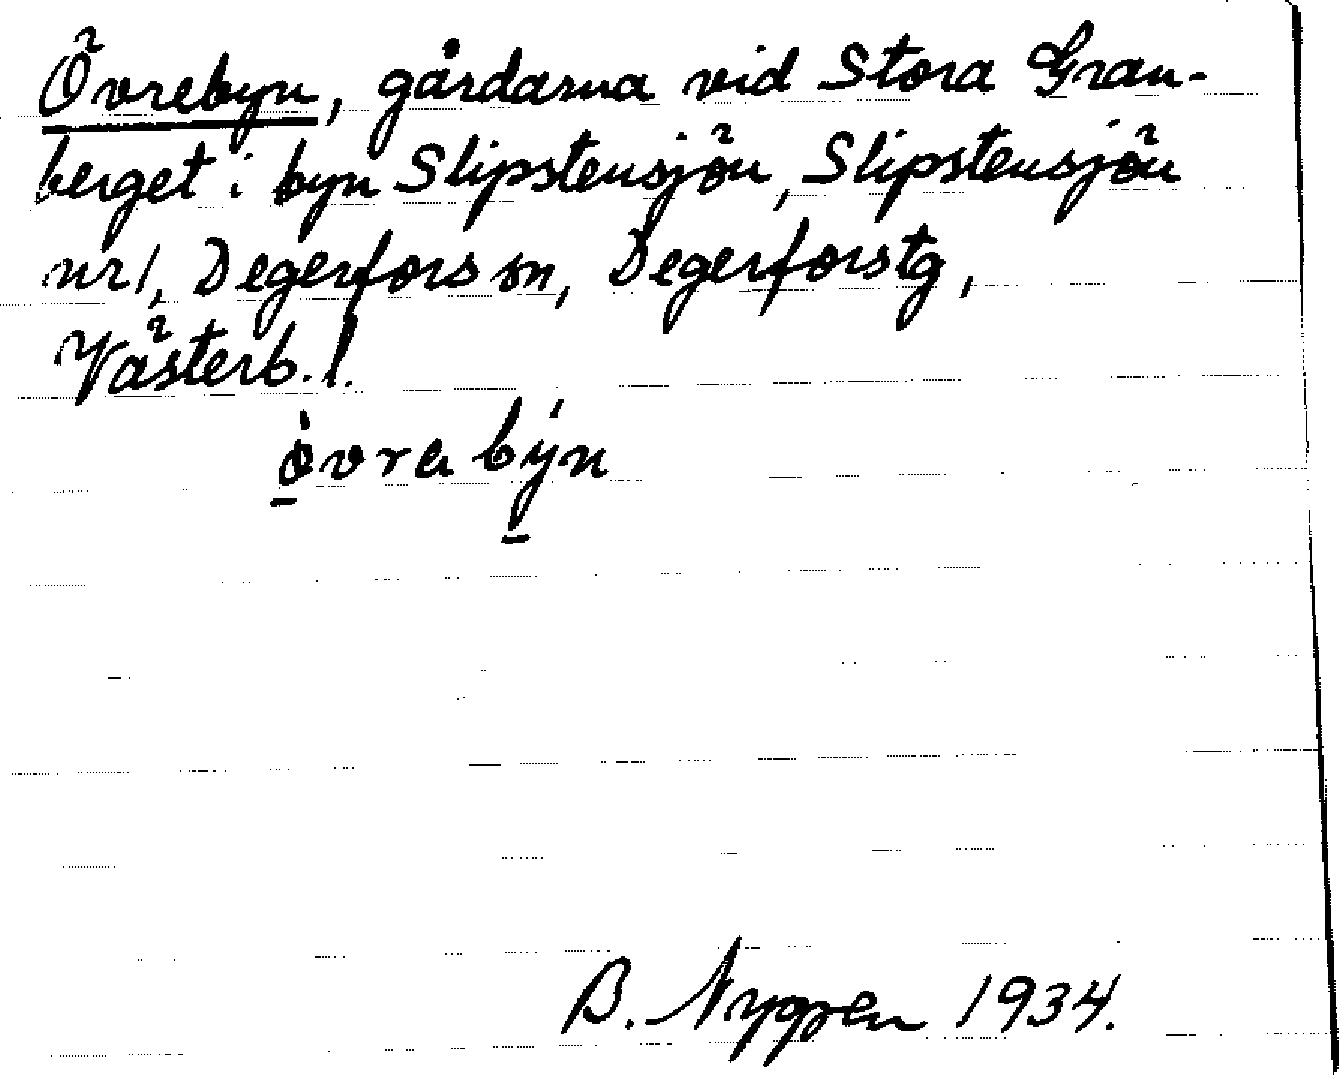 Övrebyn, gårdarna vid Stora Gran-
berget i byn Slipstensjön, Slipstensjön
nr 1, Degerfors sn, Degerfors tg,
Västerb. l.
òvra býn
B. Nygren 1934.